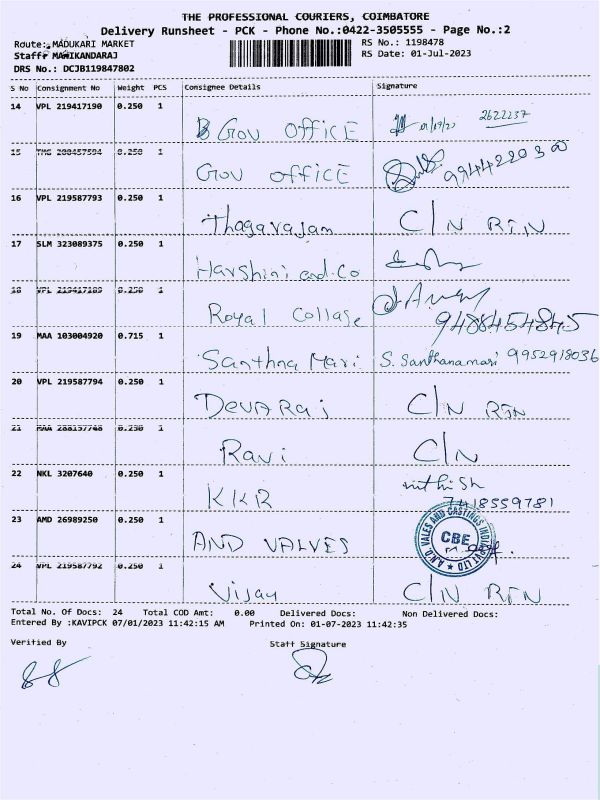 THE PROFESSIONAL COURIERS, COIMBATORE
Delivery Runsheet - PCK - Phone No.:0422-3505555 - Page No.:2
Route: MADUKARI MARKET
RS No.: 1198478
Staff: MANIKANDARAJ
RS Date: 01-Jul-2023
DRS No.: DCJB119847802
S No Consignment No Weight PCS Consignee Details Signature
14 VPL 219417190 0.250 1 Gov OFFICE 2622237
15 0.250 1 Gov OFFICE 9944220300
16 VPL 219587793 0.250 1 Thagarajam C/N RTN
17 SLM 323089375 0.250 1 Harshini and Co
18 0.250 1 Royal Collage 9488454845
19 MAA 103004920 0.715 1 Santhna Mari S. Santhanamari 9952918036
20 VPL 219587794 0.250 1 DEVARaj C/N RTN
21 0.250 1 Ravi C/N
22 NKL 3207640 0.250 1 KKR nithish
7418559781
23 AMD 26989250 0.250 1 AND VALVES A.N.D. VALES AND CASTINGS INDIA PVT LTD CBE
24 VPL 219587792 0.250 1 Vijay C/N RTN
Total No. Of Docs: 24 Total COD Amt: 0.00 Delivered Docs: Non Delivered Docs:
Entered By :KAVIPCK 07/01/2023 11:42:15 AM Printed On: 01-07-2023 11:42:35
Verified By Staff Signature